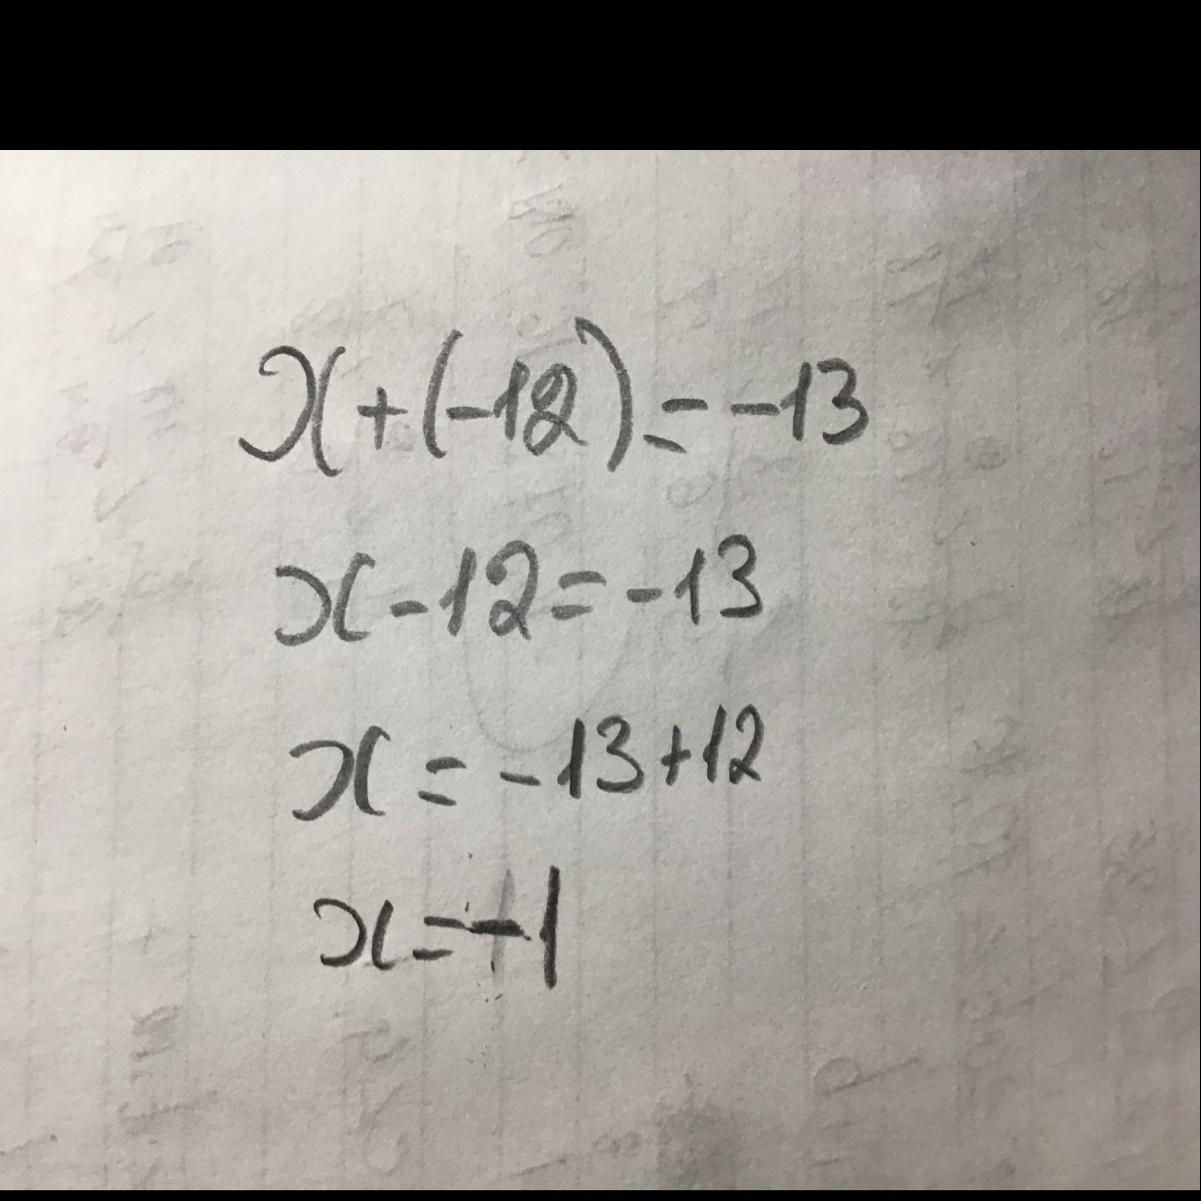 x+(-12)=-13
x-12=-13
x=-13+12
x=-1